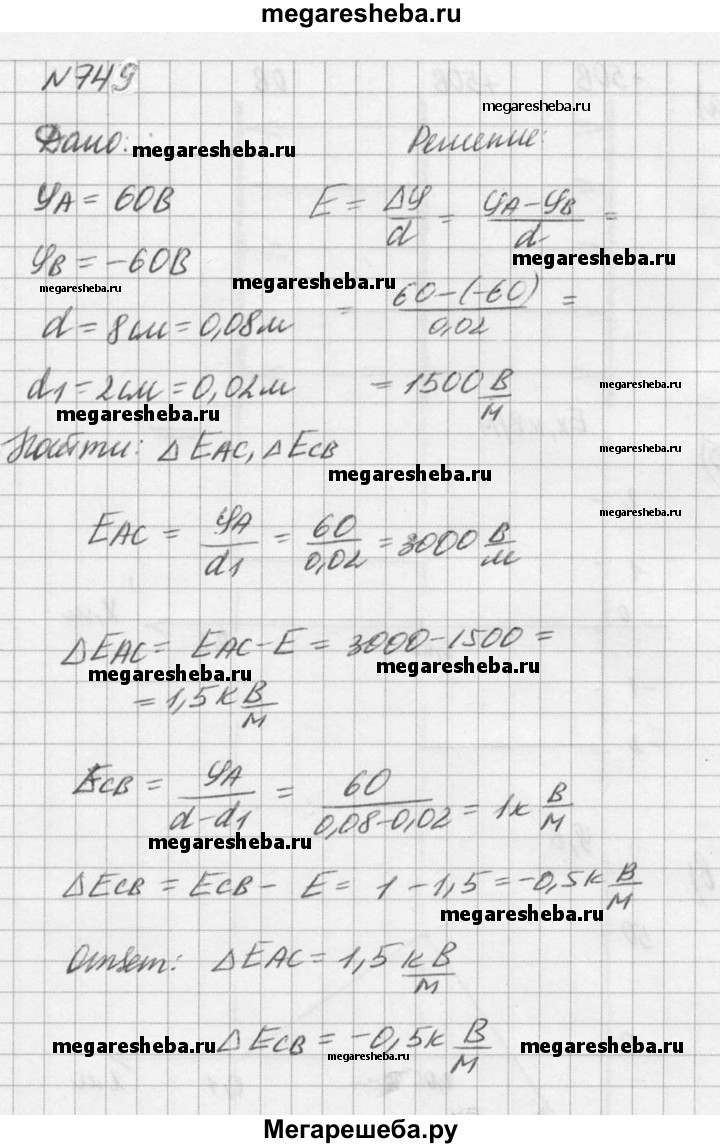 megaresheba.ru
N749
megaresheba.ru
Дано: Решение:
megaresheba.ru
φA = 60В E = Δφ/d = (φA−φB)/d =
megaresheba.ru
φB = −60В
megaresheba.ru megaresheba.ru
= (60−(−60))/0,02 =
d = 8см = 0,08м
d1 = 2см = 0,02м = 1500 В/м
megaresheba.ru
megaresheba.ru
Найти: ΔEAC, ΔECB
megaresheba.ru
megaresheba.ru
EAC = φA/d1 = 60/0,02 = 3000 В/м
megaresheba.ru
ΔEAC = EAC−E = 3000−1500 =
megaresheba.ru
megaresheba.ru
= 1,5к В/м
ECB = φA/(d−d1) = 60/(0,08−0,02) = 1к В/м
megaresheba.ru
ΔECB = ECB − E = 1−1,5 = −0,5к В/м
megaresheba.ru
Ответ: ΔEAC = 1,5к В/м
ΔECB = −0,5к В/м
megaresheba.ru megaresheba.ru megaresheba.ru
Мегарешеба.ру